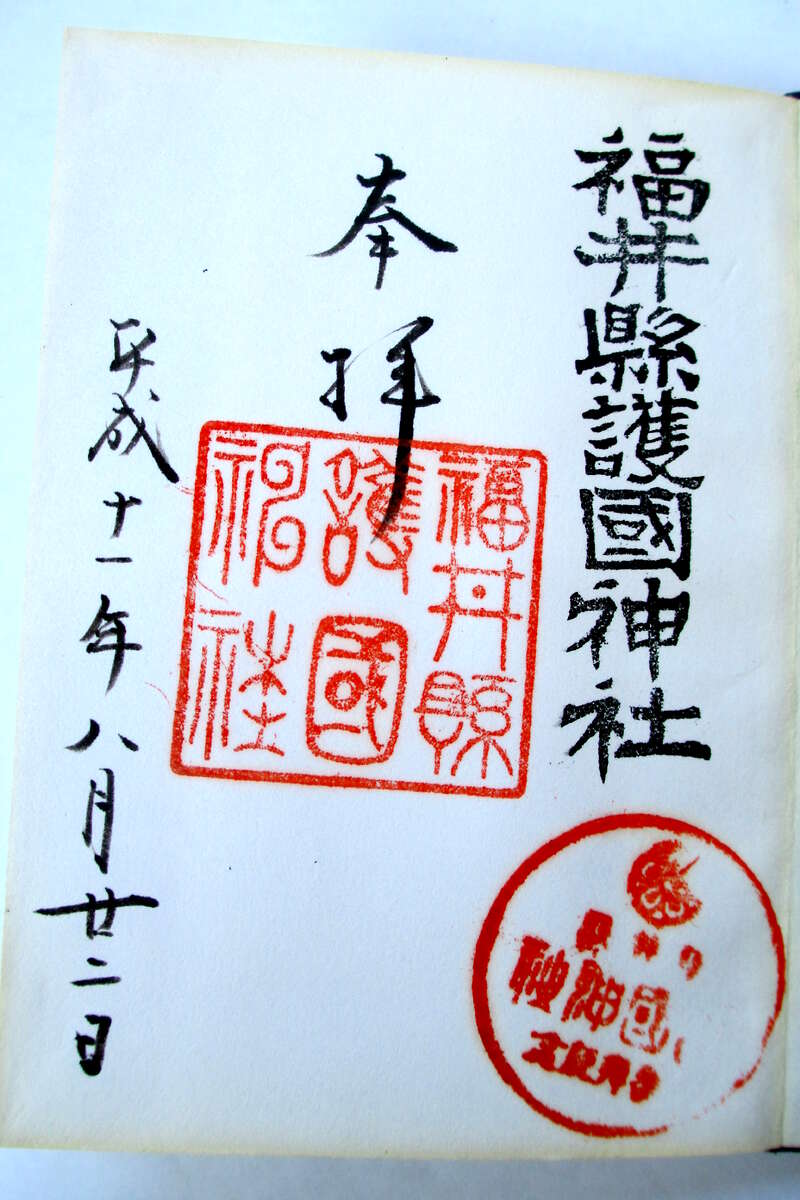 福井縣護國神社
奉拝
福井縣
護國
神社
平成十一年八月廿二日